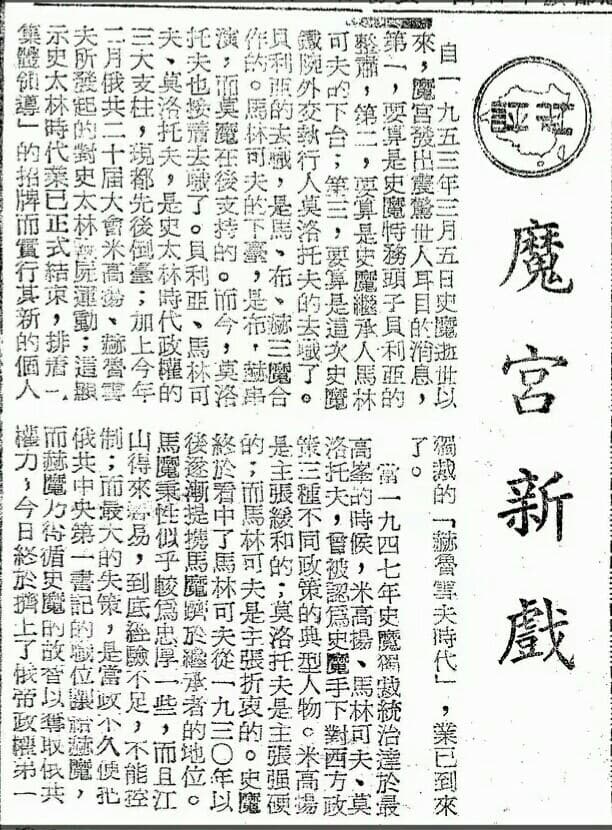 短評
魔宮新戲
自一九五三年三月五日史魔逝世以
來，魔宮發出震驚世人耳目的消息，
第一，要算是史魔特務頭子貝利亞的
整肅，第二，要算是史魔繼承人馬林
可夫的下台；第三，要算是這次史魔
鐵腕外交執行人莫洛托夫的去職了。
貝利亞的去職，是馬、布、赫三魔合
作的。馬林可夫的下臺，是布、赫串
演，而莫魔在後支持的。而今，莫洛
托夫也按着去職了。貝利亞、馬林可
夫、莫洛托夫，是史太林時代政權的
三大支柱，現都先後倒臺；加上今年
二月俄共二十屆大會米高揚、赫魯雪
夫所發起的對史太林 屍運動；這顯
示史太林時代業已正式結束，排着「
集體領導」的招牌而實行其新的個人
獨裁的「赫魯雪夫時代」，業已到來
了。
當一九四七年史魔獨裁統治達於最
高峯的時候，米高揚、馬林可夫、莫
洛托夫，曾被認爲史魔手下對西方政
策三種不同政策的典型人物。米高揚
是主張緩和的；莫洛托夫是主張强硬
的；而馬林可夫是主張折衷的。史魔
終於看中了馬林可夫從一九三〇年以
後逐漸提携馬魔躋於繼承者的地位。
馬魔秉性似乎較爲忠厚一些，而且江
山得來容易，到底經驗不足，不能控
制；而最大的失策，是當政不久便把
俄共中央第一書記的職位讓給赫魔，
而赫魔乃得循史魔的故智以奪取俄共
權力，今日終於擠上了俄帝政權弟一